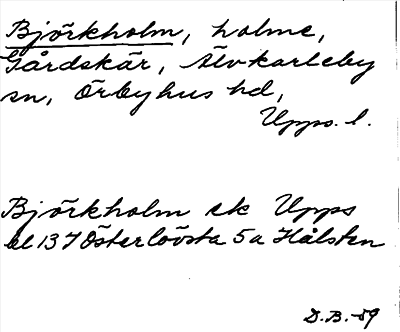 Björkholm, holme,
Gårdskär, Älvkarleby
sn, Örbyhus hd,
Upps. l.
Björkholm ek Upps
bl 137 Österlövsta 5a Hålsten
D.B.-59